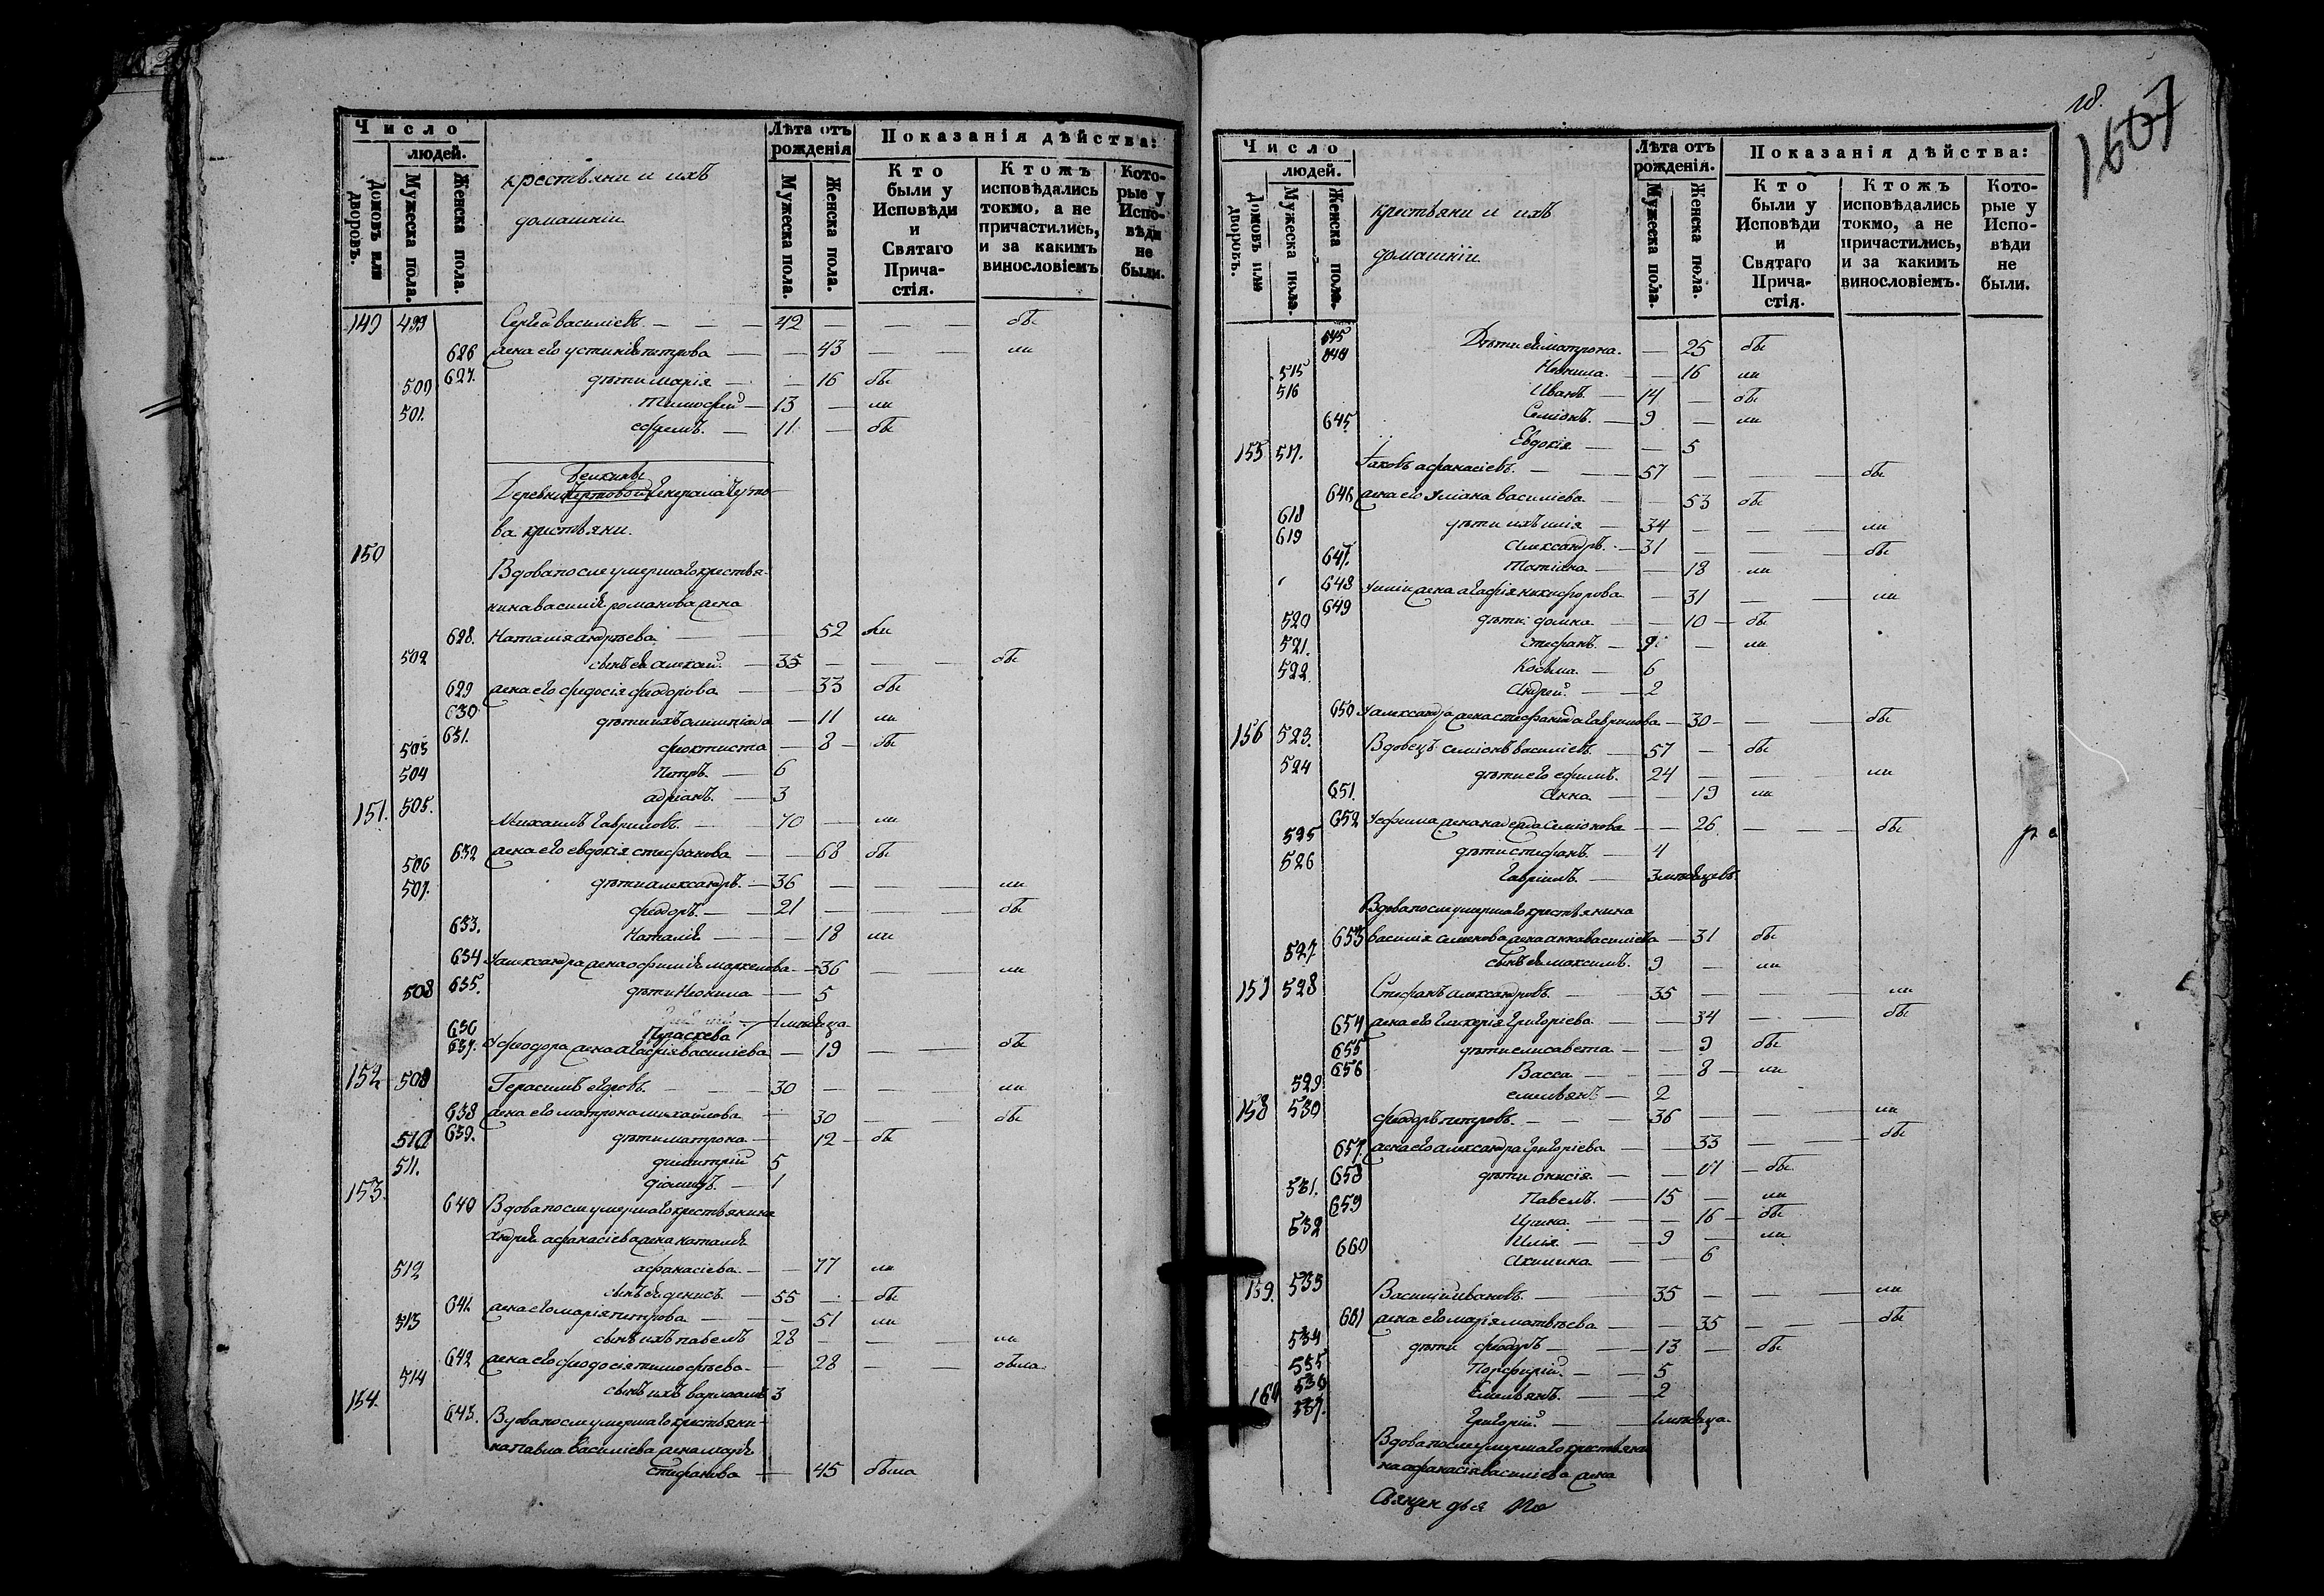 Число
людей.
Домовъ или дворовъ.
Мужеска пола.
Женска пола.
крестьяни и ихъ
домашніи
Лѣта отъ рожденія
Мужеска пола.
Женска пола.
Показанія дѣйства:
Кто были у Исповѣди и Святаго Прича- стія.
Ктожъ исповѣдались токмо, а не причастились, и за какимъ винословіемъ
Кото- рые у Испо- вѣди не были.
149 499 Сергей василіевъ — 42 — бы
626 жена его устинія петрова — 43 — ли
627. дѣти марія — 16 бы
500 тимофей — 13 — ли
501. ефремъ — 11 — бы
Деревни генерала
ва крестьяни.
150
Вдова после умершаго крестья-
нина василія романова жена
628. Наталія андреева — 52
502 сынъ ея алексей — 35 — бы
629 жена его федосія феодорова — 33 бы
630 дѣти ихъ — 11 ли
631. феоктиста — 8 — бы
503 Петръ — 6
504 адріанъ — 3
151. 505. Михаилъ гавриловъ — 70 — ли
632 жена его евдокія стефанова — 68 бы
506 дѣти александръ — 36 — ли
507. феодоръ — 21 — бы
633. Наталія — 18 ли
634 У александра жена маркелова — 36 — ли
635. дѣти Неонила — 5
508
636 Параскева
637. У феодора жена агафія василіева — 19 — бы
152 509 Герасимъ — 30 — ли
638 жена его матрона михайлова — 30 — бы
639. дѣти матрона — 12 — бы
510 димитрій 5
511. — 1
153.
640 Вдова после умершаго крестьянина
андрея афанасіева жена наталія
афанасіева — 77 ли
512 сынъ ея денисъ — 55 — бы
641. жена его марія петрова — 51 ли
513 сынъ ихъ павелъ 28 — ли
642 жена его феодосія тимофѣева — 28 — была
514 сынъ ихъ варлаамъ 3
154.
643. Вдова после умершаго крестьяни-
на павла василіева жена марія
стефанова — 45 была
18.
1607
Число
людей.
Домовъ или дворовъ.
Мужеска пола.
Женска пола.
крестьяни и ихъ
домашніи
Лѣта отъ рожденія.
Мужеска пола.
Женска пола.
Показанія дѣйства:
Кто были у Исповѣди и Святаго Прича- стія.
Ктожъ исповѣдались токмо, а не причастились, и за какимъ винословіемъ.
Кото- рые у Испо- вѣди не были.
Дѣти ея матрона — 25 бы
Неонила — 16 ли
515 Иванъ — 14 — бы
516 Семіонъ — 9 — ли
645. Евдокія — 5
155 517. Іаковъ афанасіевъ — 57 — бы
646 жена его уліана василіева — 53 бы
618 дѣти ихъ илія — 34 — ли
619 александръ — 31 — бы
647. Татіана — 18 ли
648 У иліи жена агафія никифорова — 31 — ли
649 дѣти домна — 10 — бы
520 стефанъ — 9 — ли
521. Косьма — 6
522. андрей — 2
650 У александра жена стефанида гаврилова — 30 — бы
156 523. Вдовецъ семіонъ василіевъ — 57 — бы
524 дѣти его ефимъ 24 — ли
651. анна — 19 ли
652 У ефима жена надежда Семіонова — 26 — бы
525 дѣти стефанъ — 4
526 гавріилъ — 3 мѣсяцевъ
Вдова после умершаго крестьянина
653 василія семенова жена анна василіева — 31 бы
527 сынъ ея максимъ 9 — ли
157 528 Стефанъ александровъ — 35 — ли
654 жена его гликерія григоріева — 34 — бы
655 дѣти елисавета — 9 бы
656 Васса — 8 — ли
529 емельянъ — 2
158 530 феодоръ петровъ — 36 — ли
657. жена его александра григоріева — 33 — бы
658 дѣти — бы
531. Павелъ — 15 — ли
659 Ирина — 16 — бы
532 Илія — 9 — ли
660 Акилина — 6
159. 533 Василій ивановъ — 35 — ли
661 жена его марія матвѣева — 35 — бы
534 дѣти феодоръ — 13 — бы
535 Порфирій — 5
536 Емельянъ — 2
160 537. Григорій — 1 мѣсяца
Вдова после умершаго крестьяни
на афанасія василіева жена